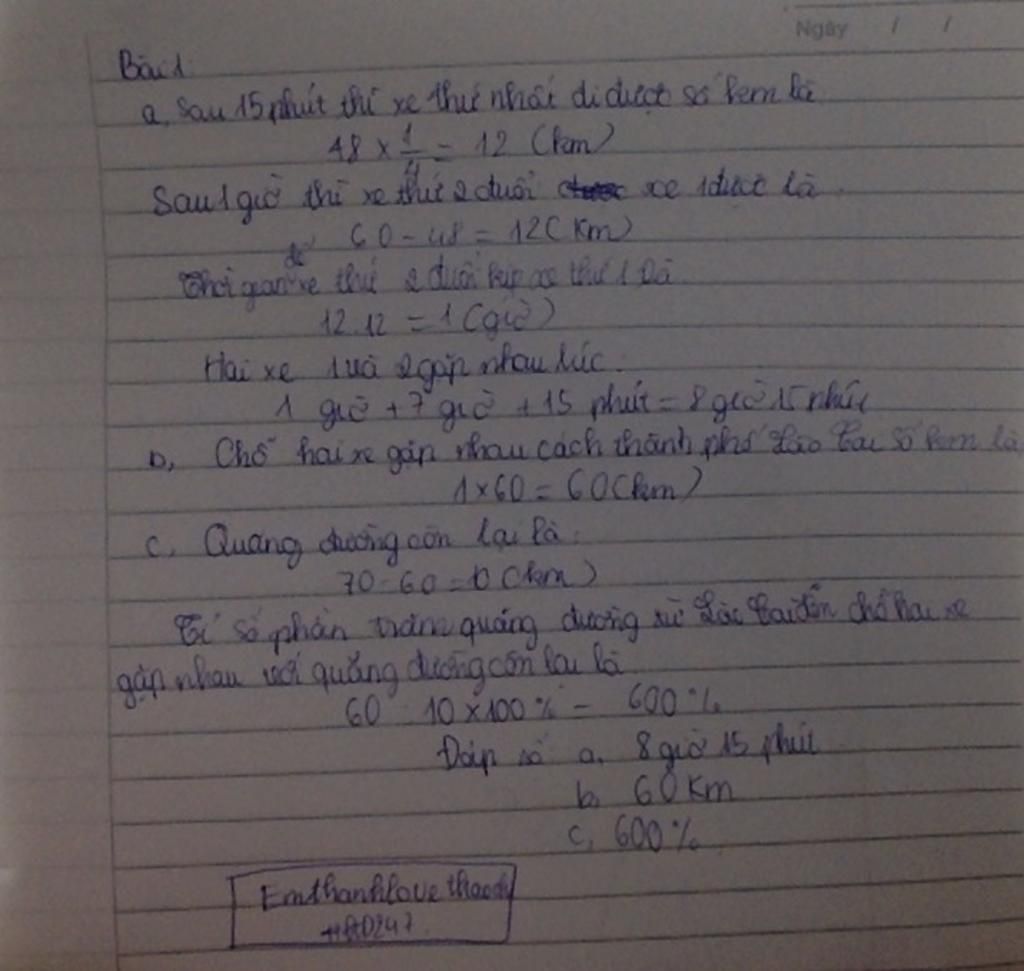 Ngày / /
Bài 1
a, Sau 15 phút thì xe thứ nhất đi được số kem là
48 × 1/4 = 12 (km)
Sau 1 giờ thì xe thứ 2 đuổi xe 1 được là
60 - 48 = 12 (km)
để
Thời gian xe thứ 2 đuổi kịp xe thứ 1 là
12 : 12 = 1 (giờ)
Hai xe 1 và 2 gặp nhau lúc.
1 giờ + 7 giờ + 15 phút = 8 giờ 15 phút
b, Chỗ hai xe gặp nhau cách thành phố Lào Cai số kem là
1 × 60 = 60 (km)
c, Quãng đường còn lại là:
70 - 60 = 10 (km)
Tỉ số phần trăm quãng đường từ Lào Cai đến chỗ hai xe
gặp nhau với quãng đường còn lại là
60 : 10 × 100 % = 600 %
Đáp số a, 8 giờ 15 phút
b, 60 Km
c, 600 %